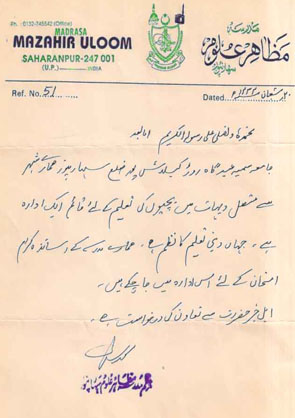 Ph.: 0132-745542 (Office)
MADRASA
MAZAHIR ULOOM
SAHARANPUR-247 001
(U.P.) INDIA
مدرسہ
مظاہر علوم
سہارنپور
Ref. No. 51
Dated
شعبان
نحمدہ ونصلی علی رسولہ الکریم امابعد
ضلع سہارنپور ہمارے شہر
سے متصل دیہات میں بچیوں کی تعلیم کے لئے قائم ایک ادارہ
ہے۔ جہاں دینی تعلیم کا نظم ہے۔ ہمارے مدرسے کے اساتذہ کرام
امتحان کے لئے اس ادارہ میں جا چکے ہیں۔
اہل خیر حضرات سے تعاون کی درخواست ہے۔